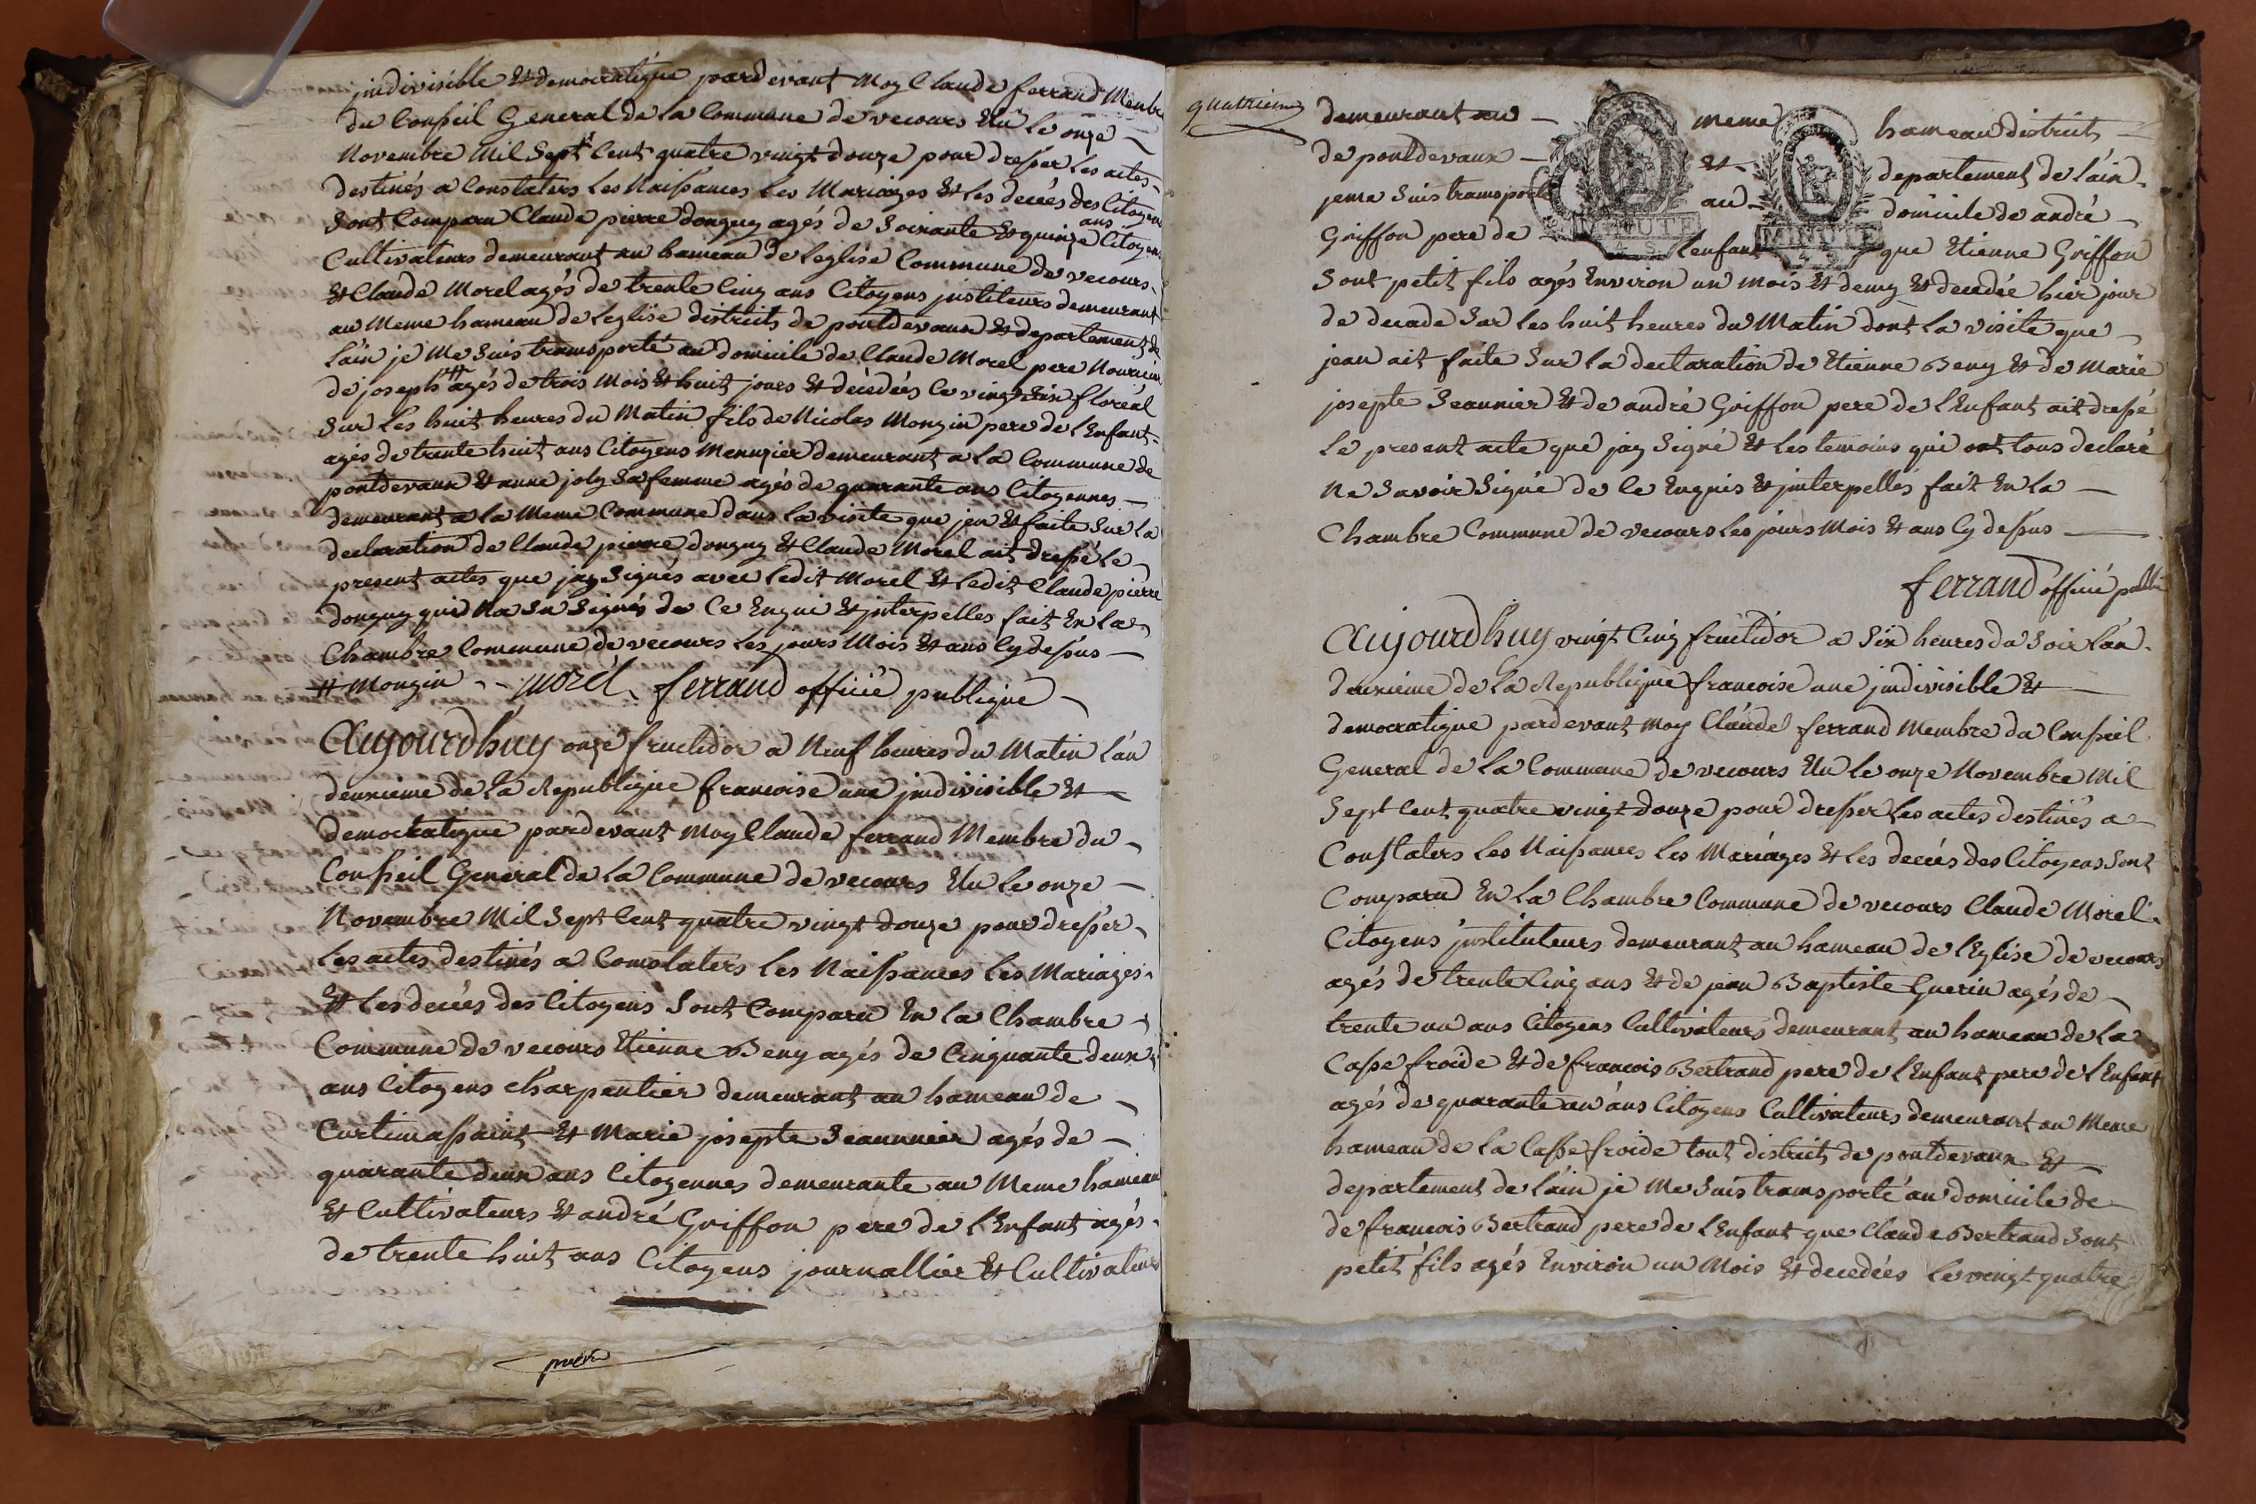 indivisible Et democratique pardevant Moy Claude ferrand Membre
du Conseil General de la Commune de vecours Elu le onze
Novembre Mil Sept Cent quatre vingt douze pour dresser les actes
destinés a Constaters les Naissances les Mariages Et les decées des Citoyens
Sont Comparu Claude pierre donguy agés de Soixante Et quinze ans Citoyens
Cultivateurs demeurant au hameau de leglise Commune de vecours
Et Claude Morel agés de trente Cinq ans Citoyens jnstiteurs demeurant
au Meme hameau de leglise districts de pontdevaux Et departement de
lain je Me Suis transporté au domicile de Claude Morel pere Nouricier
de joseph # agés de trois Mois Et huit jours Et décédées le vingt Six floréal
Sur les huit heures du Matin fils de Nicolas Mongin pere de lEnfant
agés de trente huit ans Citoyens Menuzier demeurant a la Commune de
pontdevaux Et anne joly Sa femme agés de quarante ans Citoyennes
demeurant a la Meme Commune dans la visite que jen Et faite Sur la
declaration de Claude pierre donguy Et Claude Morel ait dressé le
present actes que jay Signés avec ledit Morel Et ledit Claude pierre
donguy qui Na Su Signés de Ce Enqui Et jnterpelles fait En la
Chambre Commune de vecours les jours Mois Et ans Cy dessus
# Mongin - - morel. ferrand officié publique
Aujourdhuy onze fructidor a Neuf heures du Matin lan
deuxieme de la Republique francoise une jndivisible Et
democratique pardevant Moy Claude ferrand Membre du
Conseil General de la Commune de vecours Elu le onze
Novembre Mil Sept Cent quatre vingt douze pour dresser
les actes destinés a Constaters les Naissances les Mariages
Et les decées des Citoyens Sont Comparu En la Chambre
Commune de vecours Etienne Beny agés de Cinquante deux
ans Citoyens charpentier demeurant au hameau de
Curtimassaint Et Marie josepte Seaunnier agés de
quarante deux ans Citoyennes demeurante au Meme hameau
Et Cultivateurs Et andré Griffon pere de lEnfant agés
de trente huit ans Citoyens journallier Et Cultivateurs
quatrieme
demeurant au meme hameau districts
de pontdevaux Et departement de láin
jeme Suis transporté au domicile de andré
Griffon pere de lenfant que Etienne Griffon
MINUTE
4 S
MINUTE
Sont petit fils agés Environ un Mois Et demy Et decedée hier jour
de decade Sur les huit heures du Matin dont la visite que
jean ait faite Sur la declaration de Etienne Beny Et de Marie
josepte Seaunier Et de andré Griffon pere de lEnfant ait dressé
le present acte que jay Signé Et les temoins qui ont tous declaré
Ne Savoir Signé de Ce Enquis Et jnterpellés fait En la
Chambre Commune de vecours les jours Mois Et ans Cy dessus
ferrand officié public
Aujourdhuy vingt Cinq fructidor a Six heures du Soir lan
deuxieme de la Republique francoise une jndivisible Et
democratique pardevant Moy Claude ferrand Membre du Conseil
General de la Commune de vecours Elu le onze Novembre Mil
Sept Cent quatre vingt douze pour dresser les actes destinés a
Constaters les Naissances les Mariages Et les decées des Citoyens Sont
Comparu En la Chambre Commune de vecours Claude Morel
Citoyens jnstituteurs demeurant au hameau de lEglise de vecours
agés de trente Cinq ans Et de jean Baptiste Guerin agés de
trente un ans Citoyens Cultivateurs demeurant au hameau de la
Casse froide Et de francois Bertrand pere de lEnfant pere de lEnfant
agés de quarante un ans Citoyens Cultivateurs demeurant au Meme
hameau de la Casse froide tout districts de pontdevaux Et
departement de lain je Me Suis transporté au domicile de
de francois Bertrand pere de lEnfant que Claude Bertrand Sont
petit fils agés Environ un Mois Et decedées le vingt quatre